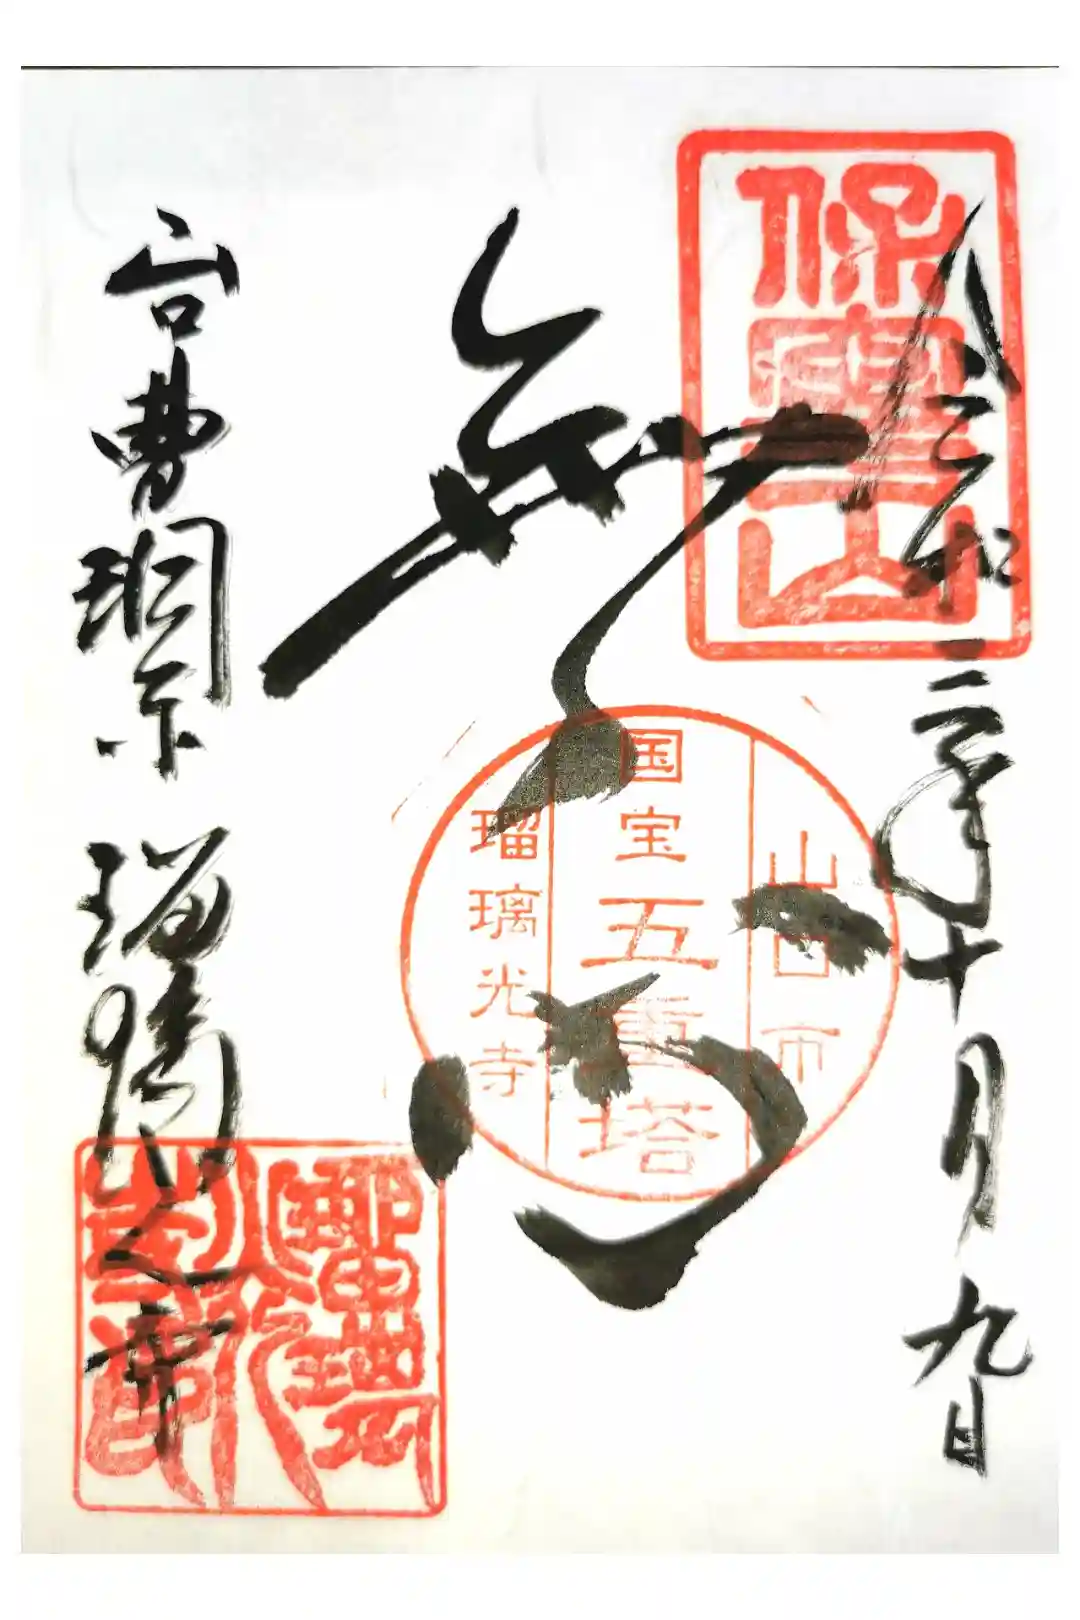 保寧山
令和二年十月九日
無心
山口市
国宝五重塔
瑠璃光寺
山口曹洞宗 瑠璃光寺